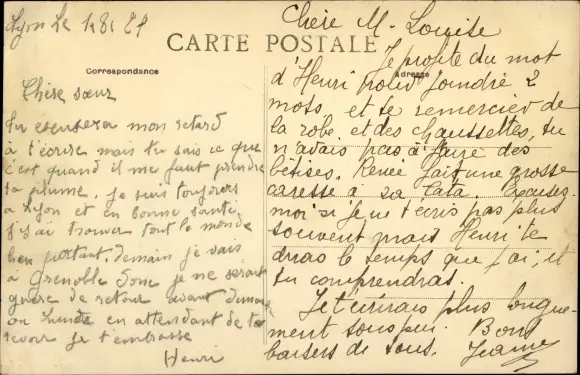 Lyon Le
CARTE POSTALE
Correspondance
Chère sœur
Tu excusera mon retard
à t'écrire mais tu sais ce que
c'est quand il me faut prendre
la plume. je suis toujours
à Lyon et en bonne santé,
j'y ai trouver tout le monde
bien portant. demain je vais
à Grenoble donc je ne serai
guère de retour avant
ou Lundi en attendant de te
revoir je t'embrasse
Henri
Chère M. Louise
Adresse
Je profite du mot
d'Henri pour joindre 2
mots et te remercier de
la robe et des chaussettes, tu
n'avais pas à faire des
bêtises. Renée fait une grosse
caresse à sa Tata. Excusez-
moi si je ne t'écris pas plus
souvent mais Henri te
diras le temps que j'ai et
tu comprendras.
Je t'écrirais plus longue-
ment sous peu. Bons
baisers de tous. Jeanne